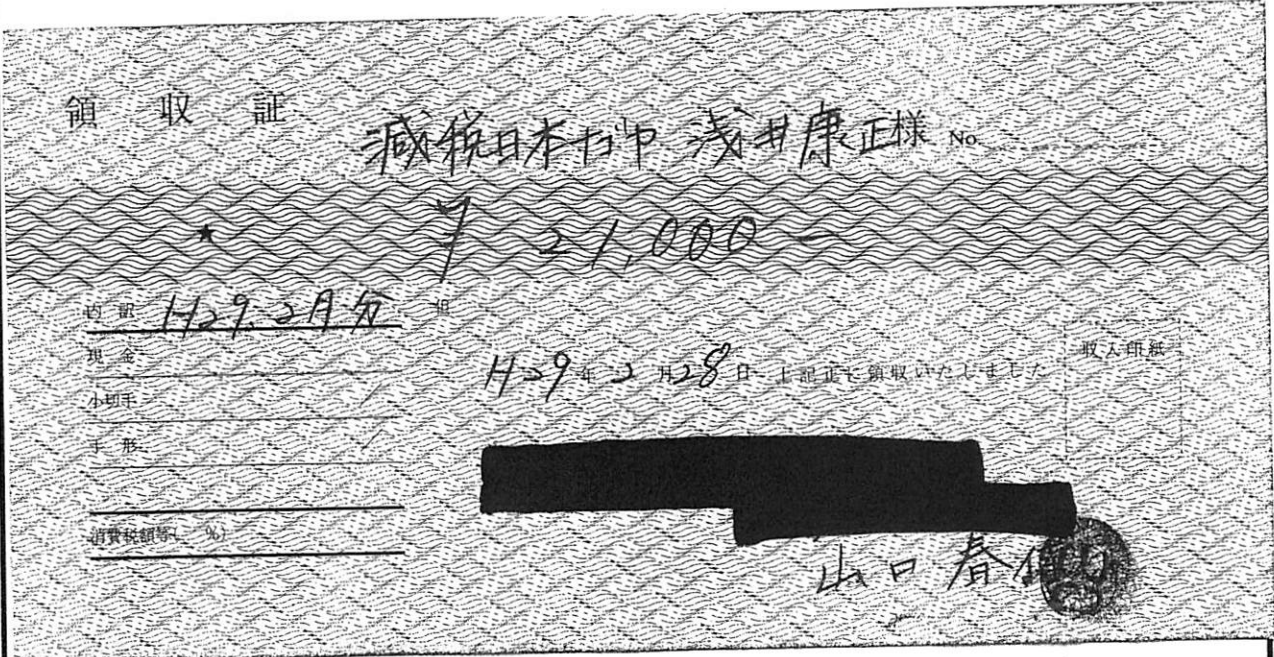 領収証
減税日本ナゴヤ 浅井康正様 No.
★ ¥ 21,000 —
内訳 H29.2月分
現金
小切手
手形
消費税額等( %)
H29年2月28日 上記正に領収いたしました
収入印紙
山口春